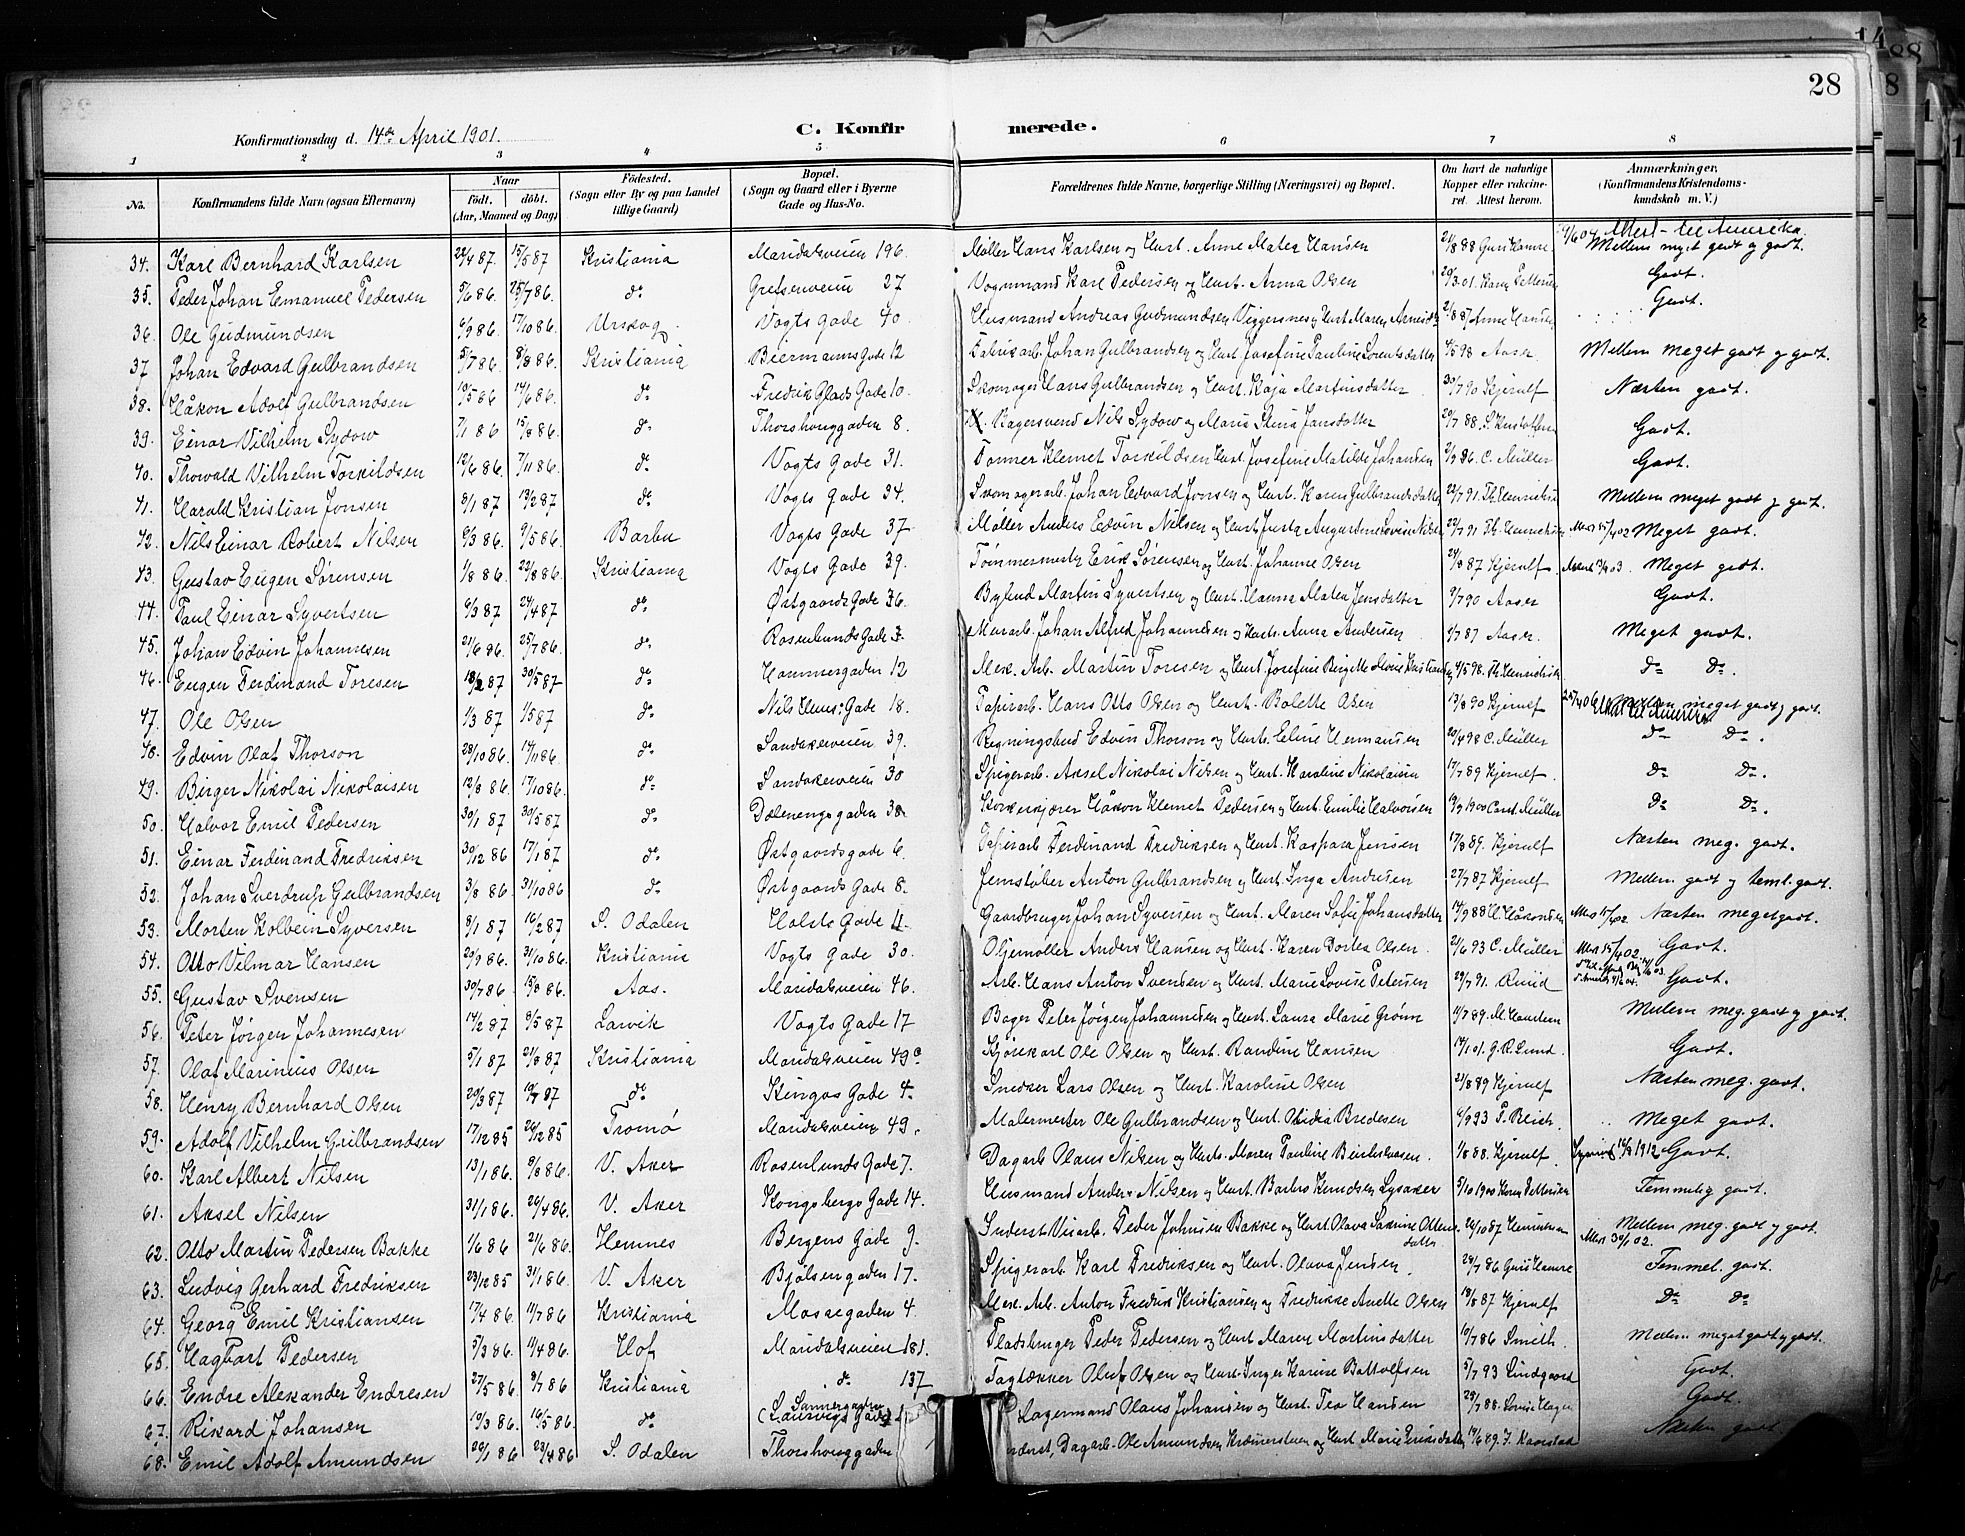 28
C. Konfirmerede.
Konfirmationsdag d. 14de April 1901.
1 2 3 4 5 6 7 8
No. Konfirmandens fulde Navn (ogsaa Efternavn) Naar født. døbt. (Aar, Maaned og Dag) Fødested. (Sogn eller By og paa Landet tillige Gaard) Bopæl. (Sogn og Gaard eller i Byerne Gade og Hus-No. Forældrenes fulde Navne, borgerlige Stilling (Næringsvei) og Bopæl. Om havt de naturlige Kopper eller vakcineret. Attest herom. Anmærkninger. (Konfirmandens Kristendomskundskab m. V.)
34. Karl Bernhard Karlsen 22/4 87. 15/5 87 Kristiania Maridalsveien 196. Møller Hans Karlsen og Hust. Anne Matea Hansen 21/8 88 Attest til Amerika. Mellem myet godt og godt.
35. Peder Johan Emanuel Pedersen 5/6 86. 25/7 86. do Grefsenveien 27 Vognmand Karl Pedersen og Hust. Anna Olsen 20/3 01. Karen Pettersen Godt.
36. Ole Gudmundsen 6/9 86 17/10 86. Urskog. Vogts Gade 40 Husmand Andreas Gudmundsen og Hust. Maren 2/8 87 Anne Godt.
37 Johan Edvard Gulbrandsen 5/7 86. 8/8 86. Kristiania Biermanns Gade 12 Fabrikarb. Johan Gulbrandsen og Hust. Josefine Pauline Lorentsdatter 4/5 98 Aaser. Mellem meget godt og godt.
38. Håkon Adolf Gulbrandsen 10/5 86 14/6 86. do Fredrik Glads Gade 10. Skomager Hans Gulbrandsen og Hust. Kaja Martinsdatter 30/7 90 Kjerulf Næsten godt.
39. Einar Vilhelm Sydow 7/1 86 15/8 86. do Thorshauggaden 8. Bagersvend Nils Sydow og Marie Stina Jansdatter 20/7 88. Godt.
40. Thorvald Vilhelm Torkildsen 12/6 86. 7/11 86. do Vogts Gade 31. Former Klemet Torkildsen Hust. Josefine Matilde Johansen 2/9 86. C. Müller Godt.
41. Harald Kristian Jonsen 8/1 87 13/2 87 do Vogts Gade 34. Skomagerarb. Johan Edvard Jonsen og Hust. Karen Gulbrandsdatter 22/7 91. Th. Henrichsen Mellem meget godt og godt.
42. Nils Einar Robert Nilsen 6/3 86. 9/5 86. Barbu Vogts Gade 37 Møller Anders Edvin Nilsen og Hust. 22/7 91 Th. Henrichsen 15/4 02 Meget godt.
43. Gustav Eugen Sørensen 1/8 86. 22/8 86. Kristiania Vogts Gade 39. Tømmermester Erik Sørensen og Hust. Johanne Olsen 24/8 87 Kjerulf. Meget godt.
44. Paul Einar Syvertsen 6/3 87 24/4 87 do Østgaards Gade 36. Bybud Martin Syvertsen og Hust. Hanna Matea Jensdatter 9/7 90 Aaser Godt.
45. Johan Edvin Johannesen 21/6 86. 25/7 86. do Rosenlunds Gade Murarb. Johan Alfred Johannesen og Hust. Anna Andersen 4/7 87 Aaser. Meget godt.
46. Eugen Ferdinand Toresen 18/2 87 30/5 87 do Hammergaden 12 Mek. Arb. Martin Toresen og Hust. Josefine Birgitte 4/5 98. Th. Henrichsen do do.
47. Ole Olsen 1/3 87 1/5 87 do Nils Huus' Gade 18. Papirarb. Hans Otto Olsen og Hust. Bolette Olsen 13/8 90 Kjerulf Mellem meget godt og godt.
48. Edvin Olaf Thorson 28/10 86. 14/11 86. do Sandakerveien 39. Regningsbud Edvin Thorson og Hust. Eline Hermansen 20/4 98 C. Müller do do.
49. Birger Nikolai Nikolaisen 12/8 86. 17/10 86. do Sandakerveien 30 Spigerarb. Aksel Nikolai Nilsen og Hust. Karoline Nikolaisen 17/7 89 Kjerulf. do do.
50. Halvor Emil Pedersen 30/1 87 30/5 87 do Dælenenggaden 38. Korkskjærer Håkon Klemet Pedersen og Hust. Emilie Halvorsen 19/9 1900 Müller do do.
51. Einar Ferdinand Fredriksen 30/12 86 17/1 87 do Østgaardsgade 6. Papirarb Ferdinand Fredriksen og Hust. Kaspara Jensen 17/8 89. Kjerulf Næsten meg. godt.
52. Johan Sverdrup Gulbrandsen 3/8 86. 31/10 86 do Østgaards Gade 8. Jernstøber Anton Gulbrandsen og Hust. Inga Andresen 27/7 87 Kjerulf Mellem godt og teml. godt.
53. Morten Kolbein Syversen 8/1 87 16/2 87 S. Odalen Holsts Gade 4. Gaardbruger Johan Syversen og Hust. Maren Sofie Johansdatter 14/9 88 H. Håkonsen 15/4 02. Næsten meget godt.
54. Otto Vilmar Hansen 29/9 86. 31/10 86. Kristiania Vogts Gade 30. Oljemøller Anders Hansen og Hust. Karen Dortea Olsen. 2/6 93 C. Müller 15/4 02. Godt.
55. Gustav Svensen 30/7 86 15/8 86. Aas. Maridalsveien 46. Arb. Hans Anton Svensen og Hust. Marie Lovise Petersen 29/7 91. Ruud Godt.
56. Peter Jørgen Johannesen 14/2 87 9/5 87 Larvik Vogts Gade 17 Bager Peter Jørgen Johannesen og Hust. Laura Marie Grønn 11/7 89. Mellem meg. godt og godt.
57. Olaf Marinius Olsen 5/1 87 21/8 87 Kristiania Maridalsveien 49c Kjørekarl Ole Olsen og Hust. Randine Hansen 14/1 01. G. R. Lund. Godt.
58. Henry Bernhard Olsen 20/3 87 do Kingos Gade 4. Snedker Lars Olsen og Hust. Karoline Olsen 21/8 89 Kjerulf Næsten meg. godt.
59. Adolf Vilhelm Gulbrandsen 17/12 85 26/12 85 Tromø Maridalsveien 49. Malermester Ole Gulbrandsen og Hust. Bredesen 6/9 93 Meget godt.
60. Karl Albert Nilsen 13/1 86. 9/8 86. V. Aker Rosenlunds Gade 7. Dagarb Olaus Nilsen og Hust. Maren Pauline 1/8 88. Kjerulf. 1912 Godt.
61. Aksel Nilsen 31/1 86. 26/4 86. V. Aker Kongsbergs Gade 14. Husmand Anders Nilsen og Hust. Lysaker 5/10 1900 Karen Pettersen Temmelig godt.
62. Otto Martin Pedersen Bakke 1/6 86 21/6 86. Hemnes Bergens Gade 9. Peder Johnsen Bakke og Hust. Olava Ottersdatter 26/10 87 30/1 02. Mellem meg. godt og godt.
63. Ludvig Gerhard Fredriksen 23/12 85 31/1 86. V. Aker Bjølsengaden 17. Spigerarb. Karl Fredriksen og Hust. Olava Jensen. 28/7 86 Temmel. godt.
64. Georg Emil Kristiansen 17/4 86 11/7 86 Kristiania Mossegaden 4 Mek. Arb. Anton Fredrik Kristiansen og Fredrikke Anette Olsen 18/8 87 Kjerulf do do
65. Hagbart Pedersen 5/3 86. 11/4 86. Hof Maridalsveien 181. Pladsbruger Peder Pedersen og Hust. Maren Martinsdatter 10/7 86 Smith. Mellem meget godt og godt.
66. Endre Aleksander Endresen 27/5 86. 9/7 86 Kristiania do 137 Tagtækker Oluf Olsen og Hust. Inger Karine Bottolfsen 5/7 93 Lindgaard Godt.
67. Rikard Johansen 19/3 86. 16/5 86. do Sannergaden Lagermand Olaus Johansen og Hust. Tea Hansen 28/7 88. Godt.
68. Emil Adolf Amundsen 20/1 86 23/4 86 S. Odalen Thorshauggaden Dagarb. Ole Amundsen og Hust. Marie Eriksdatter Næsten godt.